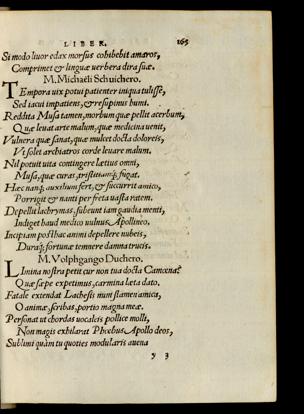 LIBER. 165
Si modo liuor edax morsus cohibebit amaros,
Comprimet & linguæ uerbera dira suæ.
M. Michaëli Schuichero.
Tempora uix potui patienter iniqua tulisse,
Sed iacui impatiens, & resupinus humi.
Reddita Musa tamen, morbum quæ pellit acerbum,
Quæ leuat arte malum, quæ medicina uenit,
Vulnera quæ sanat, quæ mulcet docta dolores,
Vt solet archiatros corde leuare malum.
Nil potuit uita contingere lætius omni,
Musa, quæ curas, tristitiamq; fugat.
Hæc nanq; auxilium fert, & succurrit amico,
Porrigit & nanti per freta uasta ratem.
Depellit lachrymas, subeunt iam gaudia menti,
Indiget haud medico uulnus Apollineo.
Incipiam posthac animi depellere nubeis,
Duraq; fortunæ temnere damna trucis.
M. Volphgango Duchero.
Limina nostra petit cur non tua docta Camœna?
Quæ sæpe expetimus, carmina læta dato.
Fatale extendat Lachesis nunc stamen amica,
O animæ, scribas, portio magna meæ.
Personat ut chordas uocaleis pollice molli,
Non magis exhilarat Phœbus Apollo deos,
Sublimi quàm tu quoties modularis auena
y 3